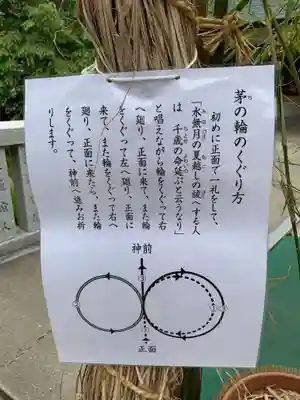 茅の輪のくぐり方
初めに正面で一礼をして、
「水無月の夏越しの祓へする人
は　千歳の命延ぶと云うなり」
と唱えながら輪をくぐって右
へ廻り、正面に来て、また輪
をくぐって左へ廻り、正面に
来て、また輪をくぐって右へ
廻り、正面に来たら、また輪
をくぐって、神前へ進みお祈
りします。
神前
正面